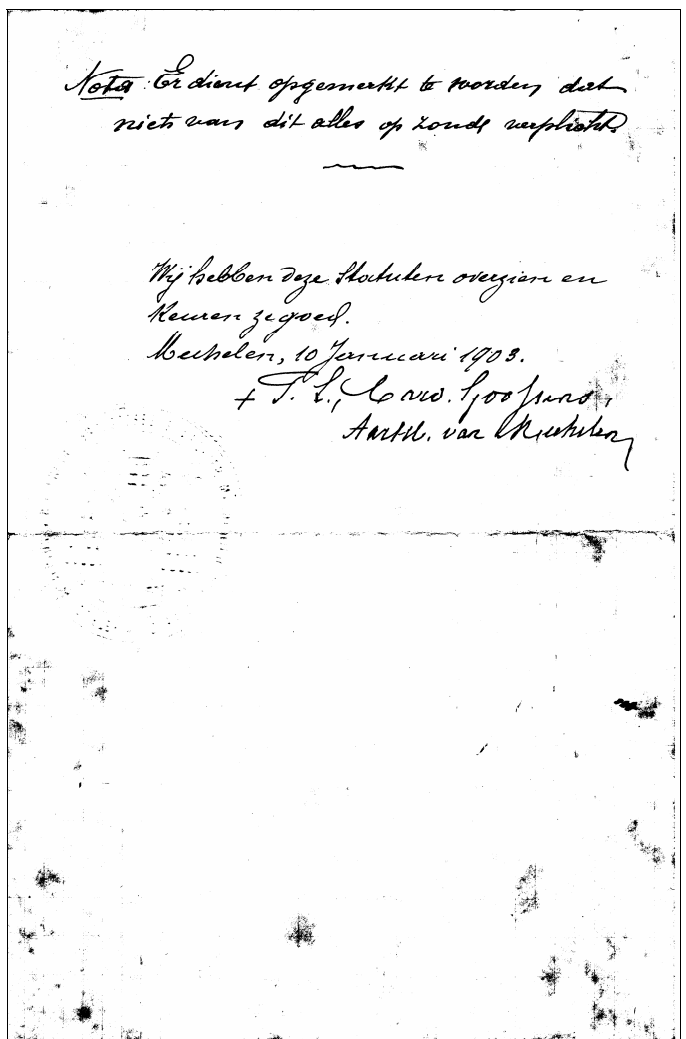 Nota: Er dient opgemerkt te worden dat
niets van dit alles op zonde verplicht.
Wij hebben deze Statuten overzien en
keuren ze goed.
Mechelen, 10 Januari 1903.
+ P. L., Card. Goossens,
Aartsb. van Mechelen